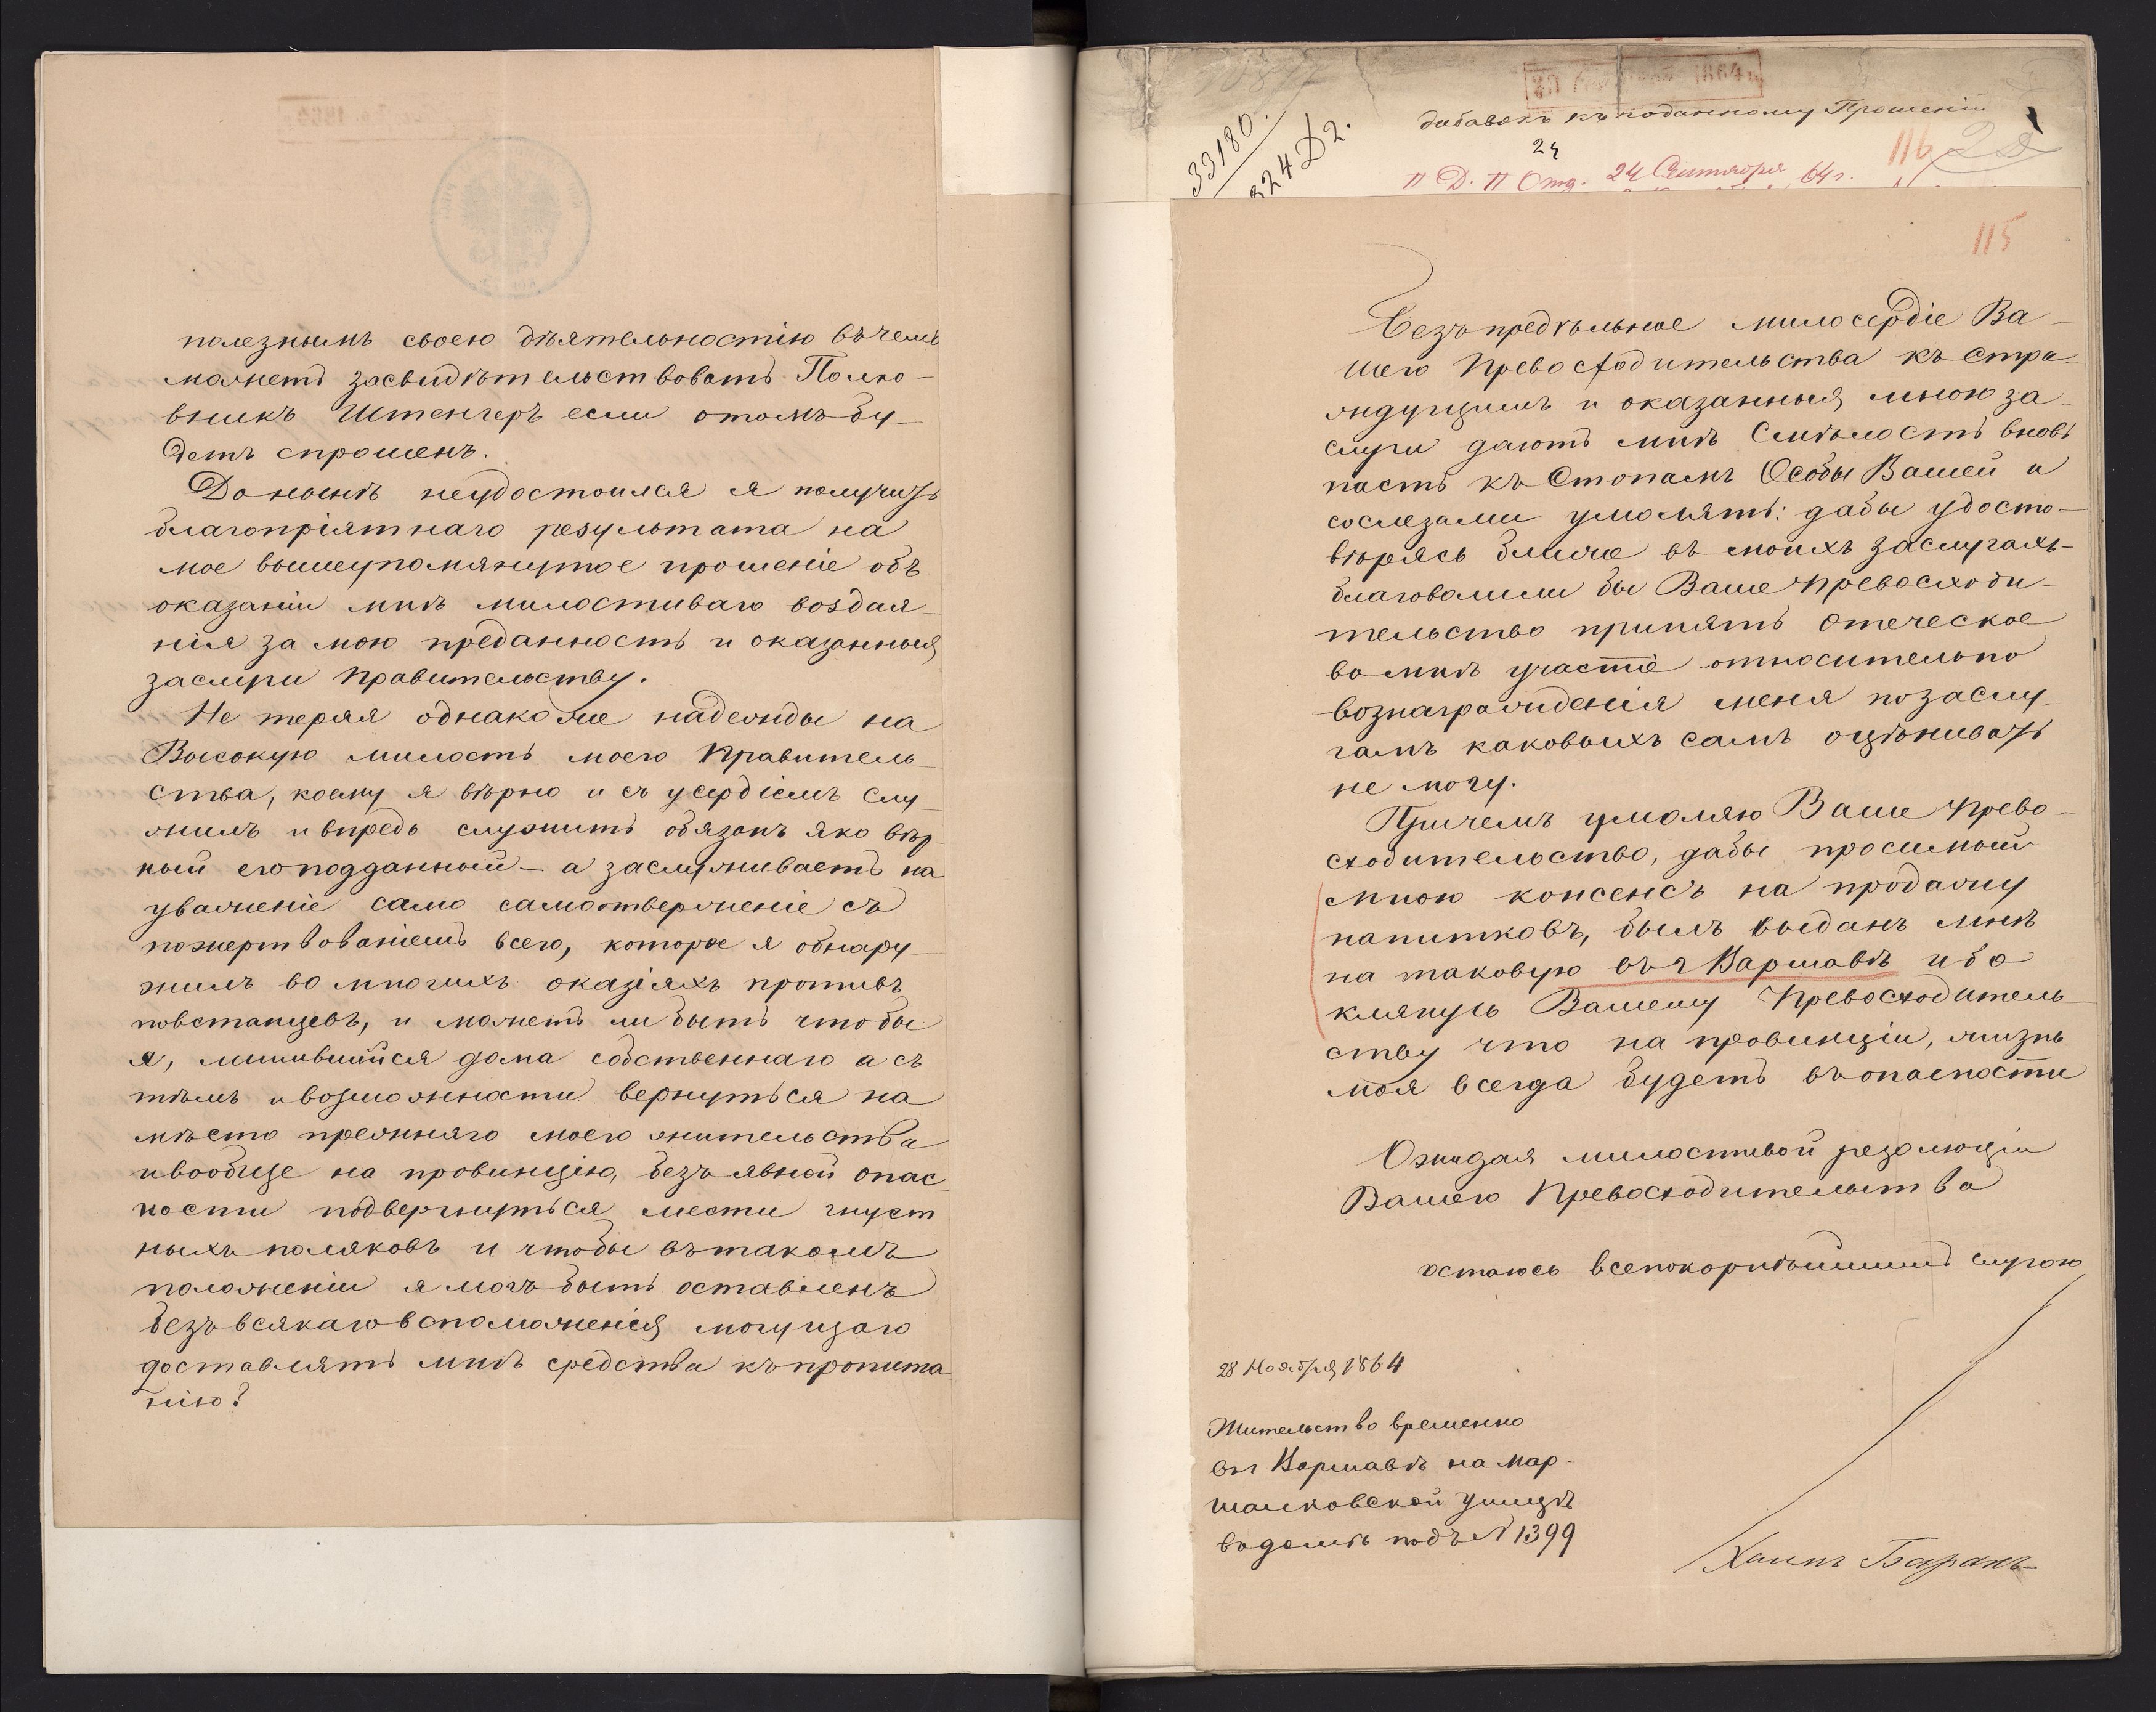 полезнымъ своею дѣятельностію въ чемъ
можетъ засвидѣтельствовать Полко-
вникъ Штенгеръ если о томъ бу-
детъ спрошенъ.
До нынѣ неудостоился я получить
благопріятнаго результата на
мое вышеупомянутое прошеніе объ
оказаніи мнѣ милостиваго воздая-
нія за мою преданность и оказанныя
заслуги Правительству.
Не теряя однакоже надежды на
Высокую милость моего Правитель-
ства, коему я вѣрно и съ усердіемъ слу-
жилъ и впредь служить обязанъ яко вѣр-
ный его подданный – а заслуживаетъ на
уваженіе само самоотверженіе съ
пожертвованіемъ всего, которое я обнару-
жилъ во многихъ оказіяхъ противъ
повстанцевъ, и можетъ ли быть чтобы
я, лишившійся дома собственнаго а съ
тѣмъ и возможности вернуться на
мѣсто прежняго моего жительства
и вообще на провинцію, безъ явной опас-
ности подвергнуться мести гнуст
ныхъ поляковъ и чтобы въ такомъ
положеніи я могъ быть оставленъ
безъ всякаго вспоможенія могущаго
доставлять мнѣ средства къ пропита
нію?
33180.
324 Д 2.
добавокъ къ поданному Прошенію
24
II Д. II Отд. 24 Сентября 64 г.
116
115
Безъпредѣльное милосердіе Ва-
шего Превосходительства къ стра-
ждущимъ и оказанныя мною за-
слуги даютъ мнѣ смѣлость вновь
пасть къ Стопамъ Особы Вашей и
сослезами умолять: дабы удосто-
вѣрясь ближе въ моихъ заслугахъ-
благоволили бы Ваше Превосходи-
тельство принять отеческое
во мнѣ участіе относительно
вознагражденія меня по заслу-
гамъ каковыхъ самъ оцѣнивать
не могу.
Причемъ умоляю Ваше Прево-
сходительство, дабы просимый
мною консенсъ на продажу
напитковъ, былъ выданъ мнѣ
на таковую въ г Варшавѣ ибо
клянусь Вашему Превосходитель-
ству что на провинціи, жизнь
моя всегда будетъ въ опасности
Ожидая милостивой резолюціи
Вашего Превосходительства
остаюсь всепокорнѣйшимъ слугою
28 Ноября 1864
Жительство временно
въ г Варшавѣ на Мар-
шалковской улицѣ
въ домѣ подъ N 1399
Хаимъ Баранъ